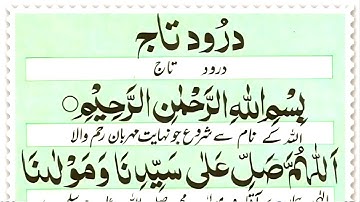 درود تاج
درود تاج
بِسْمِ اللهِ الرَّحْمٰنِ الرَّحِيْمِ
اللہ کے نام سے شروع جو نہایت مہربان رحم والا
اَللّٰهُمَّ صَلِّ عَلٰى سَيِّدِنَا وَمَوْلٰىنَا